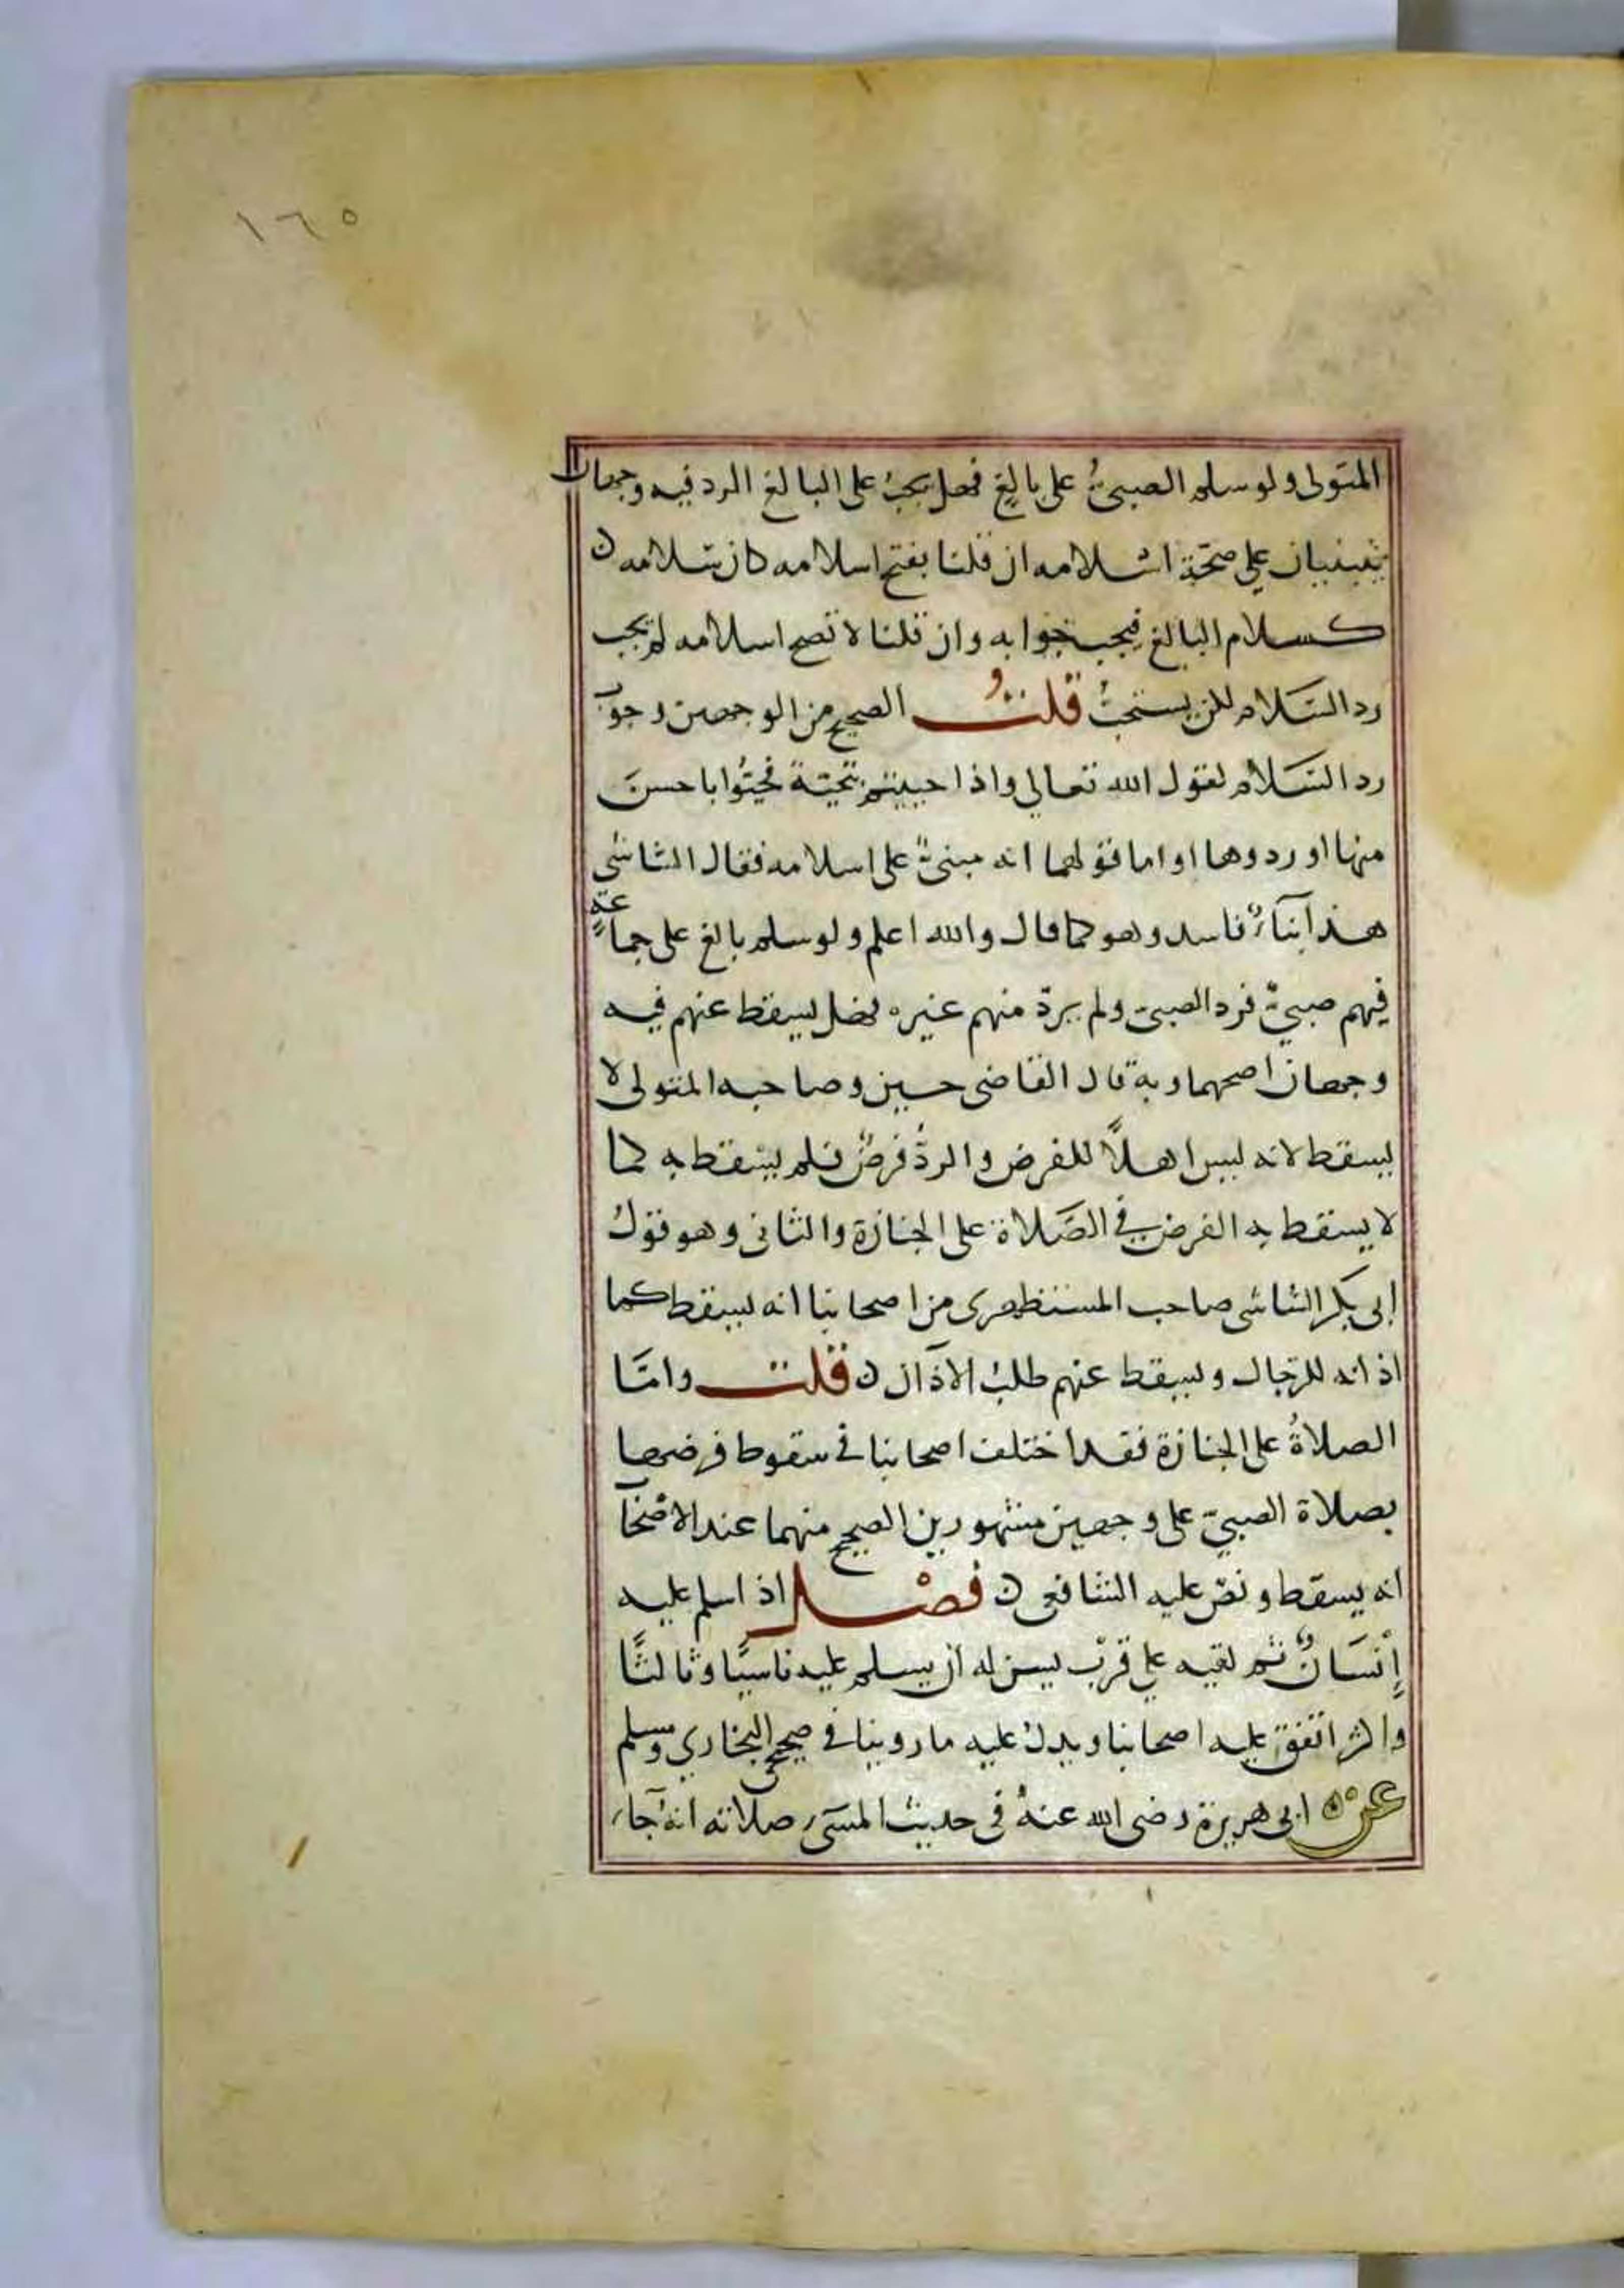 ١٦٥
المتولى ولو سلم الصبىُّ على بالغٍ فهل يجبُ على البالغ الرد فيه وجهان
يبنيان على صحّة اسلامه ان قلنا بفتح اسلامه كان سلامه ن
كسلام البالغ فيجب جوابه وان قلنا لا تصح اسلامه لم يجب
رد السَلام لكن يستحبُ قلتُ الصحيح من الوجهين وجوب
رد السَلام لقول الله تعالى واذا حييتم بتحيّة فحيّوا باحسنَ
منها او ردوها او اما قولهما انه مبنىٌّ على اسلامه فقال الشاشى
هذا بنآءٌ فاسد وهو كما قال والله اعلم ولو سلم بالغ على جماعةٍ
فيهم صبىٌّ فرد الصبىّ ولم يردّ منهم غيره فهل يسقط عنهم فيه
وجهان اصحهما وبه قال القاضى حسين وصاحبه المتولى لا
يسقط لانه ليس اهلًا للفرض والردُّ فرضٌ فلم يسقط به كما
لا يسقط به الفرض في الصَلاة على الجنازة والثانى وهو قول
ابى بكر الشاشى صاحب المستظهرى من اصحابنا انه يسقط كما
اذانه للرجال ويسقط عنهم طلبُ الاذان ن قلت وامّا
الصلاةُ على الجنازة فقد اختلف اصحابنا في سقوط فرضها
بصلاة الصبىّ على وجهين مشهورين الصحيح منهما عند الاصحاب
انه يسقط ونصّ عليه الشافعى ن فصْل اذا سلم عليه
إنْسَانٌ ثم لقيه على قرْبٍ يسن له أن يسلم عليه ثانيًا وثالثًا
واكثر اتفق عليه اصحابنا ويدل عليه ما روينا في صحيحى البخاري ومسلم
عنْ ابى هريرة رضى الله عنهُ فى حديث المسىء صلاته انه جآء